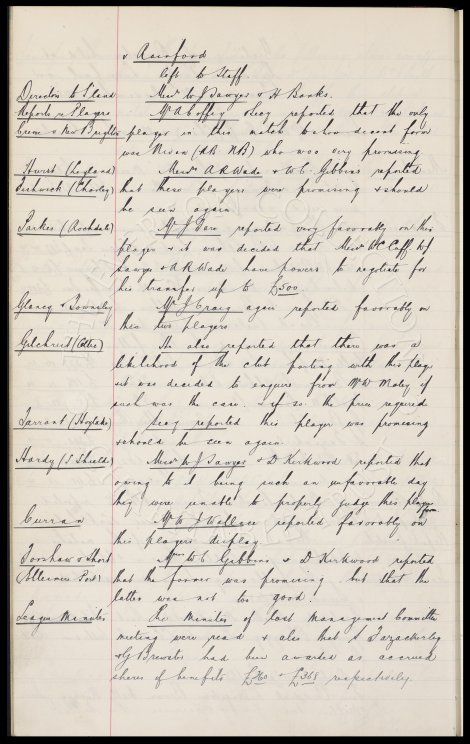 & Rainford
left to Staff.
Directors to Stand Messrs W J Sawyer & H Banks.
Reports re Players Mr A Coffey & Secy reported that the only
Crewe v New Brighton player in this match to show decent form
was Nixon (RB NB) who was very promising
Hurst (Leyland) Messrs A R Wade & W C Gibbins reported
Fishwick (Chorley) that these players were promising & should
be seen again.
Parkes (Rochdale) Mr J Fare reported very favorably on this
player & it was decided that Messrs W C Cuff W J
Sawyer & A R Wade have powers to negotiate for
his transfer up to £500
Glancy & Townsley Mr J Craig again reported favorably on
these two players
Gilchrist (Celtic) He also reported that there was a
likelihood of the club parting with this player
& it was decided to enquire from Mr W Maley if
such was the case & if so the price required
Tarrant (Hoylake) Secy reported this player was promising
& should be seen again.
Hardy (S Shields) Messrs W J Sawyer & D Kirkwood reported that
owing to it being such an unfavorable day
they were unable to properly judge this players form
Curran Mr W J Wallace reported favorably on
this players display
Forshaw & Short Messrs W C Gibbins & D Kirkwood reported
(Ellesmere Port) that the former was promising but that the
latter was not too good.
League Minutes The minutes of last Management Committee
meeting were read & also that A Tazackerley
& G Brewster had been awarded as accrued
shares of benefits £360 & £365 respectively.